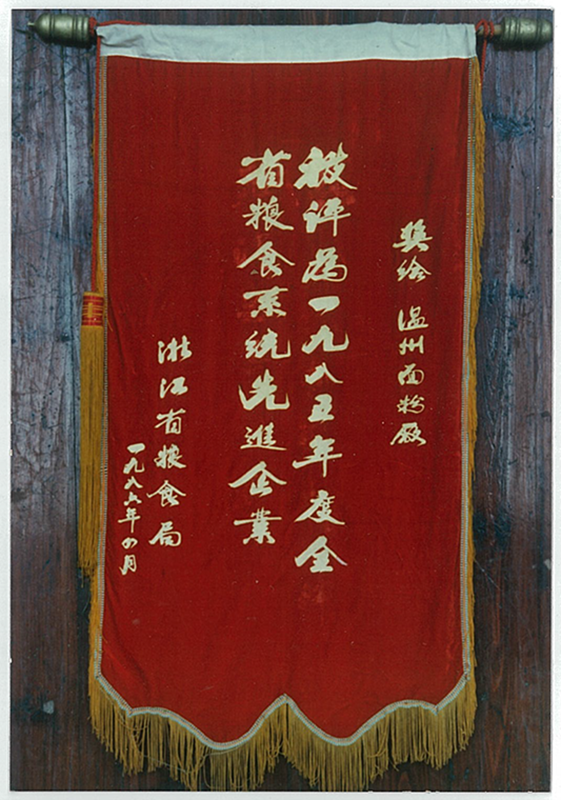 奖给 温州面粉厰
被评为一九八五年度全
省粮食系统先進企業
浙江省粮食局
一九八六年四月